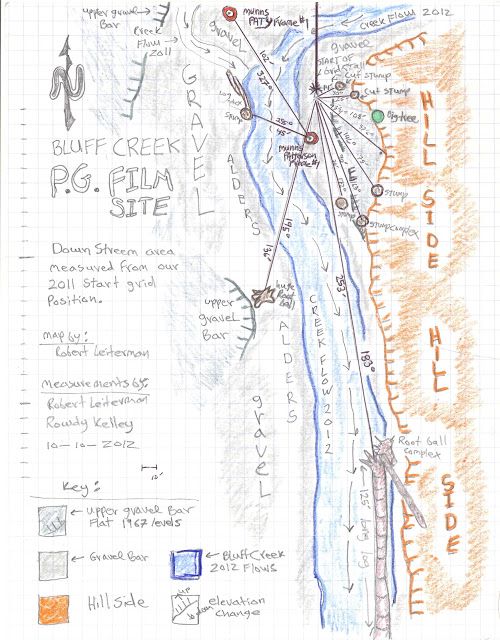 upper gravel
Bar
Creek
Flow
2011
N
BLUFF CREEK
P.G. FILM
SITE
Down Streem area
measured from our
2011 Start grid
Position.
map by:
Robert Leiterman
Measurements by:
Robert Leiterman
Rowdy Kelley
10-10-2012
10'
Key:
upper gravel Bar
Flat 1967 levels
Gravel Bar
Bluff Creek
2012 Flows
Hill Side
up
down
elevation
change
munns
PATTY Frame #1
gravel
102'
GRAVEL
ALDERS
45'
munns
Patterson
195°
136'
huge
Root
ball
upper
gravel
Bar
ALDERS
gravel
CREEK FLOW 2012
Creek Flow 2012
gravel
START OF
Cut stump
Cut stump
Big tree
108'
stump
stump
stump complex
253'
183°
Root ball
complex
125' long log
HILL SIDE
HILL
SIDE